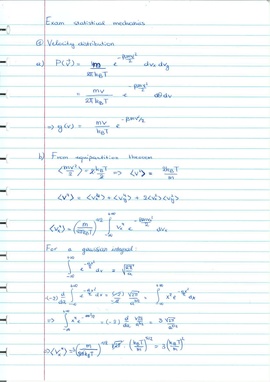 Exam statistical mechanics
① Velocity distribution
a) P(v⃗) = m/(2πk_BT) e^(-βmv²/2) dv_x dv_y
= mv/(2πk_BT) e^(-βmv²/2) dθ dv
⇒ g(v) = mv/(k_BT) e^(-βmv²/2)
b) From equipartition theorem
⟨mv²/2⟩ = 2 k_BT/2 ⇒ ⟨v²⟩ = 2k_BT/m
⟨v⁴⟩ = ⟨v_x⁴⟩ + ⟨v_y⁴⟩ + 2⟨v_x²⟩⟨v_y²⟩
⟨v_x⁴⟩ = (m/(2πk_BT))^(1/2) ∫_{-∞}^{+∞} v_x⁴ e^(-βmv_x²/2) dv_x
For a gaussian integral:
∫_{-∞}^{+∞} e^(-ax²/2) dx = √(2π/a)
(-2) d/da ∫_{-∞}^{+∞} e^(-ax²/2) dx = √(2π)/a^(3/2) = ∫_{-∞}^{+∞} x² e^(-ax²/2) dx
⇒ ∫_{-∞}^{+∞} x⁴ e^(-ax²/2) = (-2) d/da √(2π)/a^(3/2) = 3 √(2π)/a^(5/2)
⇒ ⟨v_x⁴⟩ = 3 (m/(2πk_BT))^(1/2) √(2π) (k_BT/m)^(5/2) = 3 (k_BT/m)²